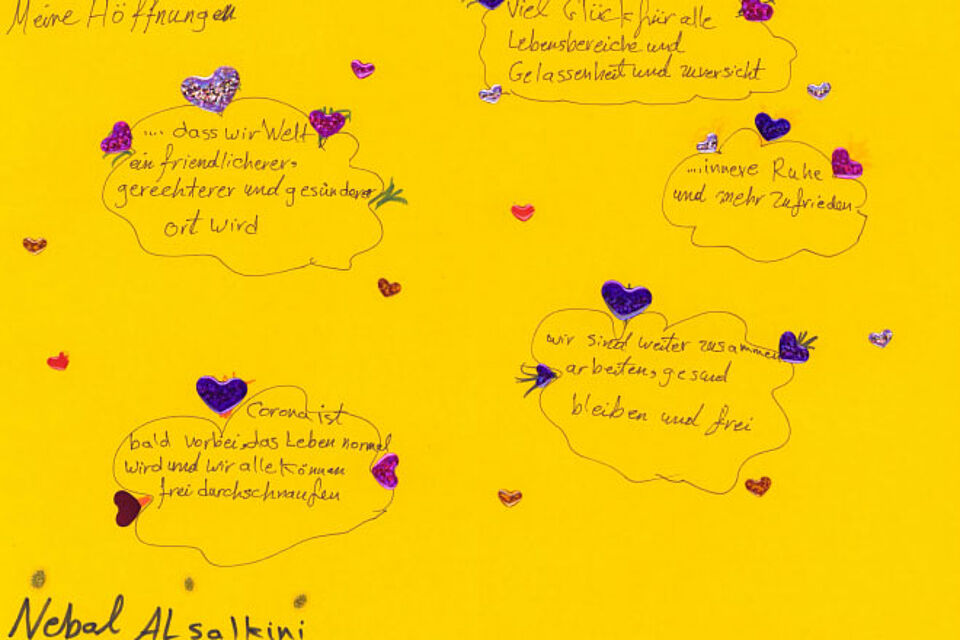 Meine Höffnungen
Viel Glück für alle
Lebensbereiche und
Gelassenheit und zuversicht
.... dass wir Welt
ein friendlicherer,
gerechterer und gesünderer
ort wird
....innere Ruhe
und mehr zufrieden.
wir sind weiter zusammen
arbeiten, gesund
bleiben und frei
Corona ist
bald vorbei, das Leben normal
wird und wir alle können
frei durchschnaufen
Nebal ALsalkini